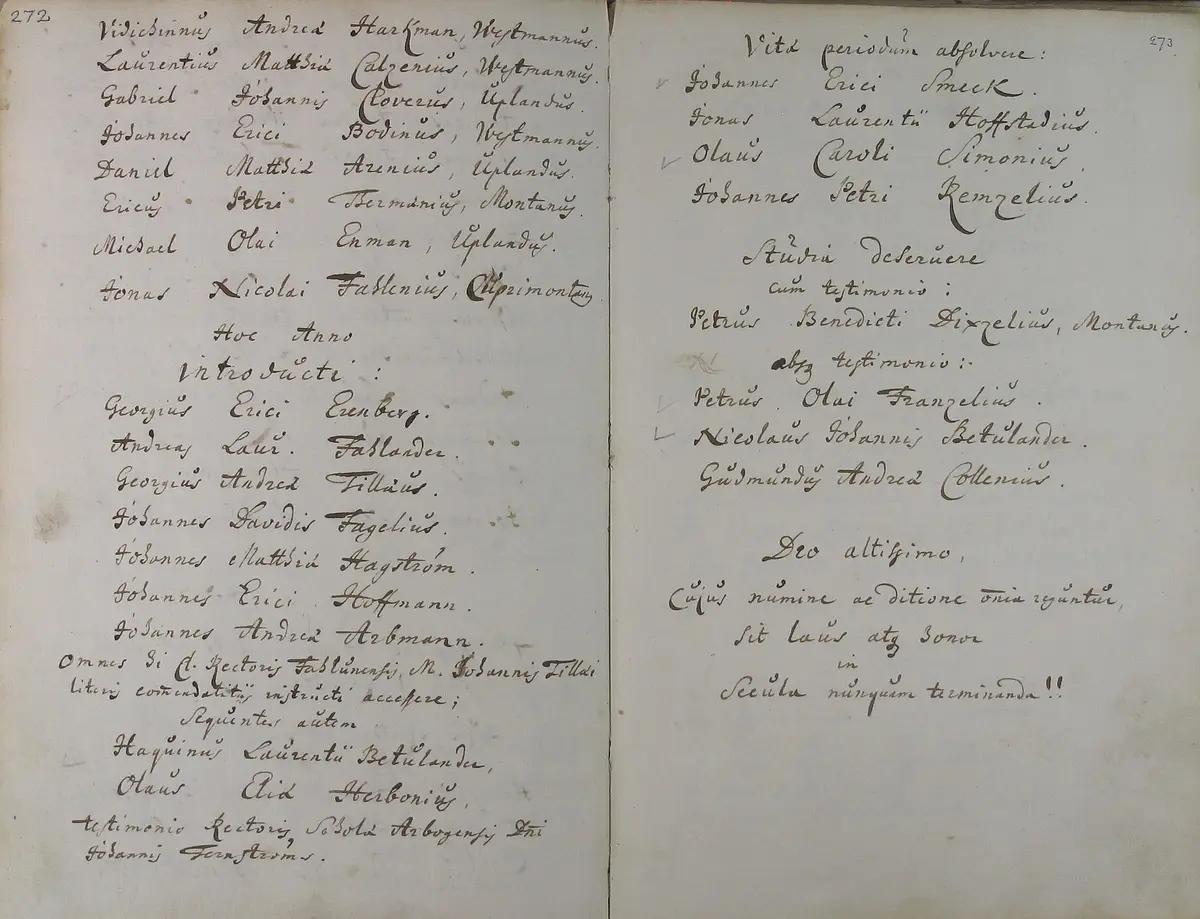 272
Vidichinnus Andreæ Harkman, Westmannus.
Laurentius Matthiæ Calzenius, Westmannus.
Gabriel Johannis Cloverus, Uplandus.
Johannes Erici Bodinus, Westmannus.
Daniel Matthiæ Arenius, Uplandus.
Ericus Petri Bermanius, Montanus.
Michael Olai Enman, Uplandus.
Jonas Nicolai Fahlenius, Cuprimontanus.
Hoc Anno
introducti :
Georgius Erici Erenberg.
Andreas Laur. Fahlander.
Georgius Andreæ Tillæus.
Johannes Davidis Fagelius.
Johannes Matthiæ Hagström.
Johannes Erici Hoffmann.
Johannes Andreæ Arbmann.
Omnes hi Cl. Rectoris Fahlunensis, M. Johannis Tillæi
literis com̄endatitijs instructi accessere;
Sequentes autem
Haquinus Laurentii Betulander,
Olaus Eliæ Herbonius,
testimonio Rectoris Scholæ Arbogensis Dn̄i
Johannis Fernströms.
273
Vitæ periodum absolvere :
Johannes Erici Smeck.
Jonas Laurentii Hoffstadius.
Olaus Caroli Simonius.
Johannes Petri Remzelius.
Studia deseruere
cum testimonio :
Petrus Benedicti Dixzelius, Montanus.
absq testimonio :-
Petrus Olai Franzelius.
Nicolaus Johannis Betulander.
Gudmundus Andreæ Collenius.
Deo altissimo,
Cujus numine ac ditione om̄ia reguntur,
sit laus atq honor
in
Secula nunquam terminanda!!